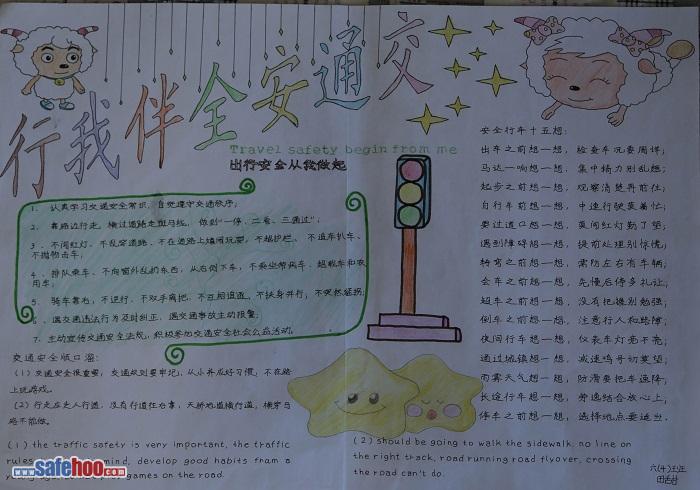 交通安全伴我行
Travel safety begin from me
出行安全从我做起
1、认真学习交通安全常识，自觉遵守交通秩序；
2、靠路边行走，横过道路走斑马线，做到“一停、二看、三通过”；
3、不闯红灯、不乱穿道路、不在道路上嬉闹玩耍、不越护栏、不追车扒车、
不抛物击车；
4、排队乘车、不向窗外乱扔东西，从右侧下车，不乘坐带病车、超载车和农
用车；
5、骑车靠右，不逆行、不双手离把、不互相追逐、不扶身并行，不突然猛拐；
6、遇交通违法行为及时纠正，遇交通事故主动报警；
7、主动宣传交通安全法规，积极参加交通安全社会公益活动。
交通安全顺口溜：
(1) 交通安全很重要，交通规则要牢记，从小养成好习惯，不在路
上玩游戏。
(2) 行走应走人行道，没有行道往右靠，天桥地道横行道，横穿马
路不能做。
(1) the traffic safety is very important, the traffic
rules mind, develop good habits fram a
games on the road.
安全行车十五想：
出车之前想一想，检查车况要周详；
马达一响想一想，集中精力别乱想；
起步之前想一想，观察清楚再前往；
自行车前想一想，中速行驶莫着忙；
要过道口想一想，莫闯红灯勤了望；
遇到障碍想一想，提前处理别惊慌；
转弯之前想一想，需防左右有车辆；
会车之前想一想，先慢后停多礼让；
超车之前想一想，没有把握别勉强；
倒车之前想一想，注意行人和路障；
夜间行车想一想，仪表车灯亮不亮；
通过城镇想一想，减速鸣号切莫望；
雨雾天气想一想，防滑要把车速降；
长途行车想一想，劳逸结合放心上；
停车之前想一想，选择地点要适当。
(2) should be going to walk the sidewalk, no line on
the right track, road running road flyover, crossing
the road can't do.
六(4)
www.safehoo.com